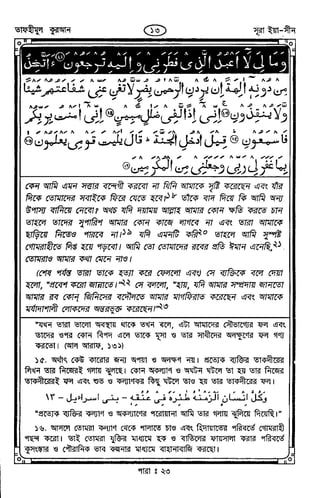 তাফহীমুল কুরআন ১৩ সূরা ইয়া-সীন
وَمَا لِيَ لَا أَعْبُدُ الَّذِي فَطَرَنِي وَإِلَيْهِ تُرْجَعُونَ ﴿۲۲﴾ ءَأَتَّخِذُ
مِن دُونِهِ آلِهَةً إِن يُرِدْنِ الرَّحْمَٰنُ بِضُرٍّ لَّا تُغْنِ عَنِّي شَفَاعَتُهُمْ شَيْئًا
وَّلَا يُنقِذُونِ ﴿۲۳﴾ إِنِّي إِذًا لَّفِي ضَلَالٍ مُّبِينٍ ﴿۲۴﴾ إِنِّي آمَنتُ بِرَبِّكُمْ
فَاسْمَعُونِ ﴿۲۵﴾ قِيلَ ادْخُلِ الْجَنَّةَ قَالَ يَا لَيْتَ قَوْمِي يَعْلَمُونَ ﴿۲۶﴾
بِمَا غَفَرَ لِي رَبِّي وَجَعَلَنِي مِنَ الْمُكْرَمِينَ ﴿۲۷﴾
কেন আমি এমন সত্তার বন্দেগী করবো না যিনি আমাকে সৃষ্টি করেছেন এবং যাঁর
দিকে তোমাদের সবাইকে ফিরে যেতে হবে?১৮ তাঁকে বাদ দিয়ে কি আমি অন্য
উপাস্য বানিয়ে নেবো? অথচ যদি দয়াময় আল্লাহ আমার কোন ক্ষতি করতে চান
তাহলে তাদের সুপারিশ আমার কোন কাজে লাগবে না এবং তারা আমাকে
ছাড়িয়ে নিতেও পারবে না।১৯ যদি এমনটি করি২০ তাহলে আমি সুস্পষ্ট
গোমরাহীতে লিপ্ত হয়ে পড়বো। আমি তো তোমাদের রবের প্রতি ঈমান এনেছি,২১
তোমরাও আমার কথা মেনে নাও।
(শেষ পর্যন্ত তারা তাকে হত্যা করে ফেললো এবং) সে ব্যক্তিকে বলে দেয়া
হলো, "প্রবেশ করো জান্নাতে।"২২ সে বললো, "হায়, যদি আমার সম্প্রদায় জানতো
আমার রব কোন্ জিনিসের বদৌলতে আমার মাগফিরাত করেছেন এবং আমাকে
মর্যাদাশালী লোকদের অন্তরভুক্ত করেছেন।"২৩
"যখন তারা ভালো অবস্থায় থাকে তখন বলে, এটা আমাদের সৌভাগ্যের ফল এবং
তাদের ওপর কোন বিপদ এলে তাকে মূসা ও তার সাথীদের অলক্ষুণের ফল গণ্য
করতো। (আল আরাফ, ১৩১)
১৫. অর্থাৎ কেউ কারোর জন্য অপয়া ও অলক্ষণ নয়। প্রত্যেক ব্যক্তির তাকদীরের
লিখন তার নিজেরই গলায় ঝুলছে। কোন অকল্যাণ ও অঘটন ঘটলে তা হয় তার নিজের
তাকদীরেরই ফল এবং শুভ ও কল্যাণকর কিছু ঘটলে তাও হয় তার তাকদীরের ফল।
وَكُلَّ إِنْسَانٍ أَلْزَمْنٰهُ طٰئِرَهُ فِي عُنُقِهِ - بنى اسراءيل - ١٣
"প্রত্যেক ব্যক্তির কল্যাণ ও অকল্যাণের পরোয়ানা আমি তার গলায় ঝুলিয়ে দিয়েছি।"
১৬. আসলে তোমরা কল্যাণ থেকে পালাতে চাও এবং হিদায়াতের পরিবর্তে গোমরাহী
পছন্দ করো। তাই তোমরা যুক্তির মাধ্যমে হক ও বাতিলের ফায়সালা করার পরিবর্তে
কুসংস্কার ও পৌরানিক ভাব কল্পনার মাধ্যমে বাহানাবাজি করছো।
পারা : ২৩